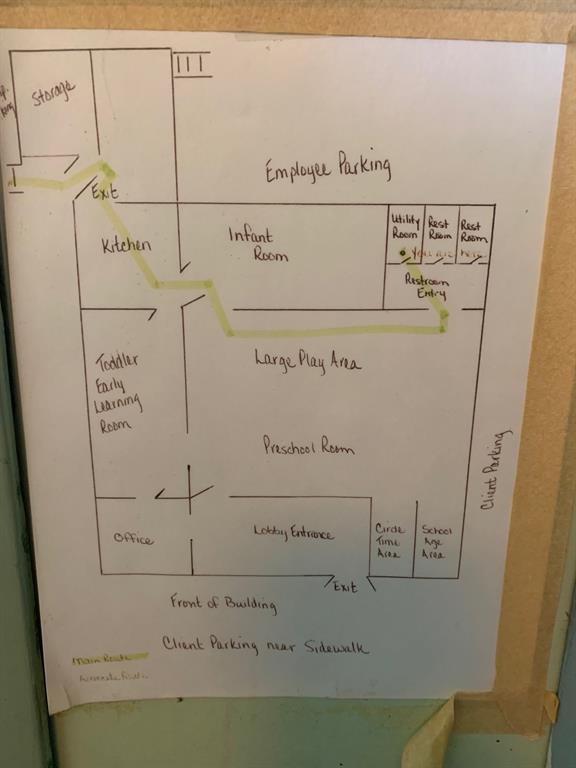 Storage
Employee Parking
Exit
Kitchen
Infant
Room
Utility
Room
Rest
Room
Rest
Room
You are here
Restroom
Entry
Large Play Area
Toddler
Early
Learning
Room
Preschool Room
Client Parking
Office
Lobby Entrance
Circle
Time
Area
School
Age
Area
Exit
Front of Building
Client Parking near Sidewalk
Main Route